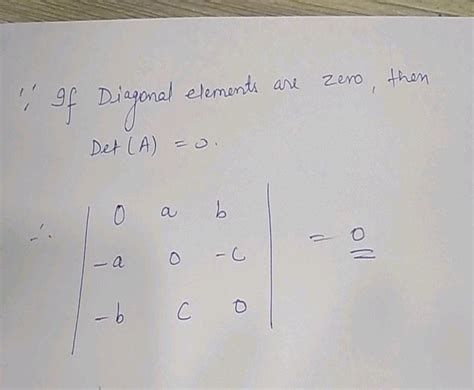 ∵ If Diagonal elements are zero, then
Det (A) = 0.
∴ | 0 a b |
| -a 0 -c | = 0
| -b c 0 |